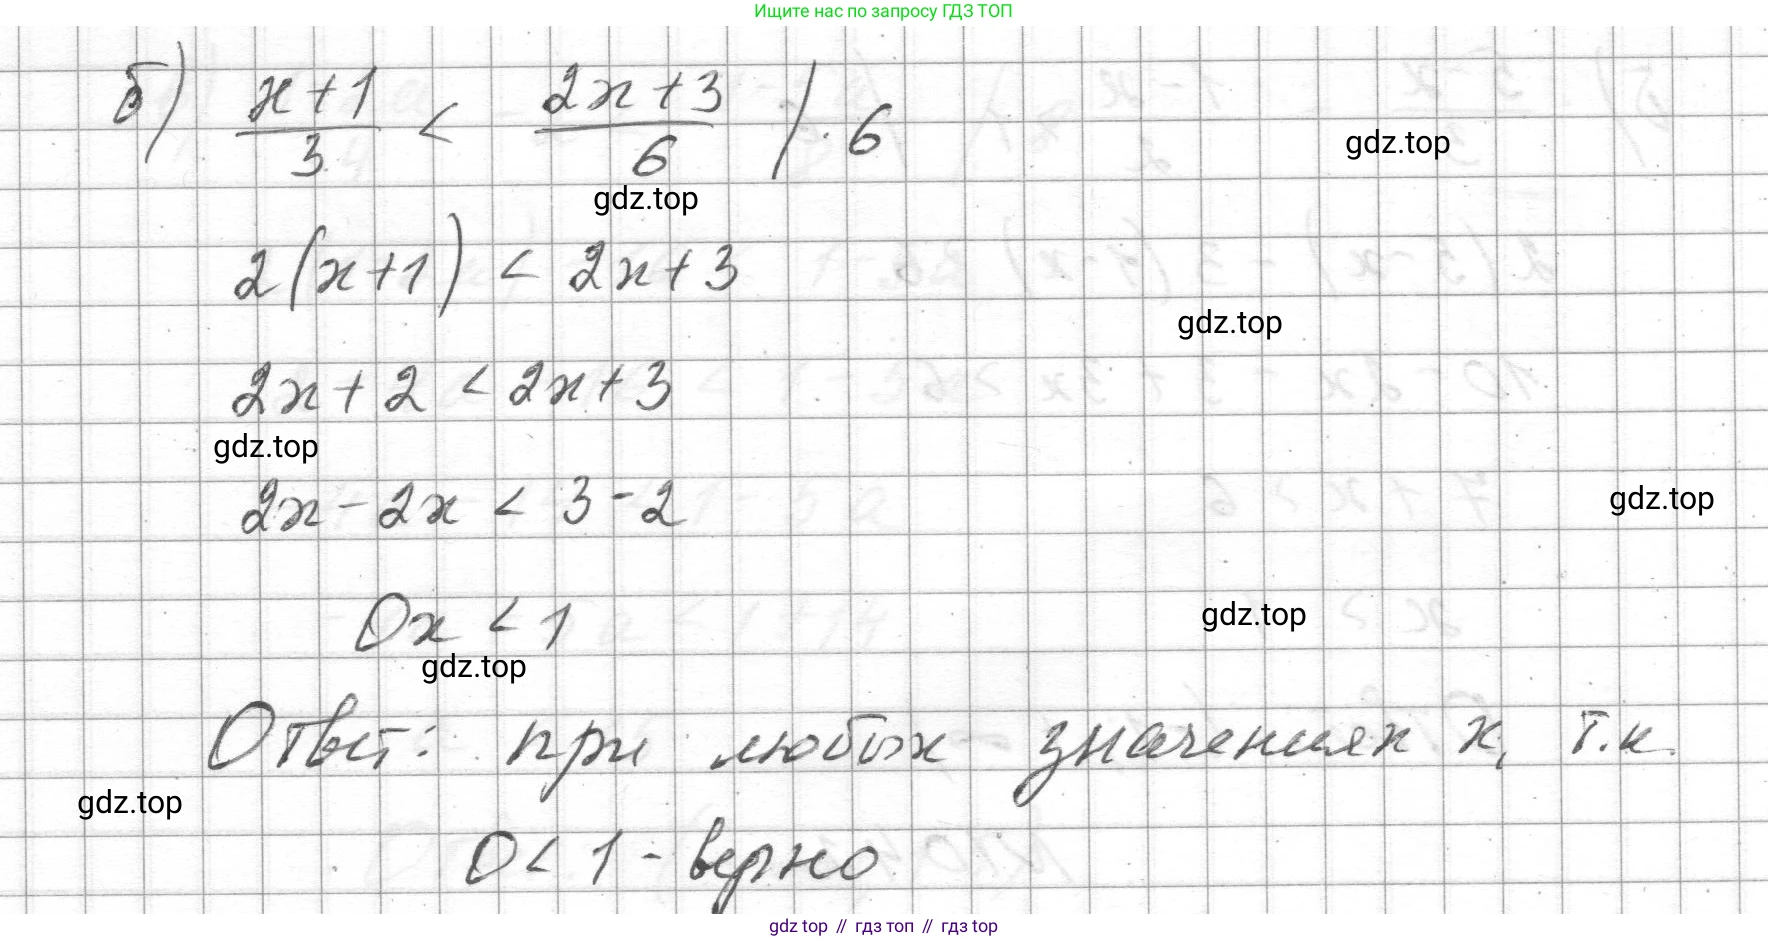 Ищите нас по запросу ГДЗ ТОП
б) x+1/3 < 2x+3/6 / · 6
gdz.top
gdz.top
2(x+1) < 2x+3
gdz.top
2x+2 < 2x+3
gdz.top
2x-2x < 3-2
gdz.top
0x < 1
gdz.top
gdz.top
Ответ: при любых значениях x, т.к.
gdz.top
0 < 1 - верно
gdz top // гдз топ // гдз top